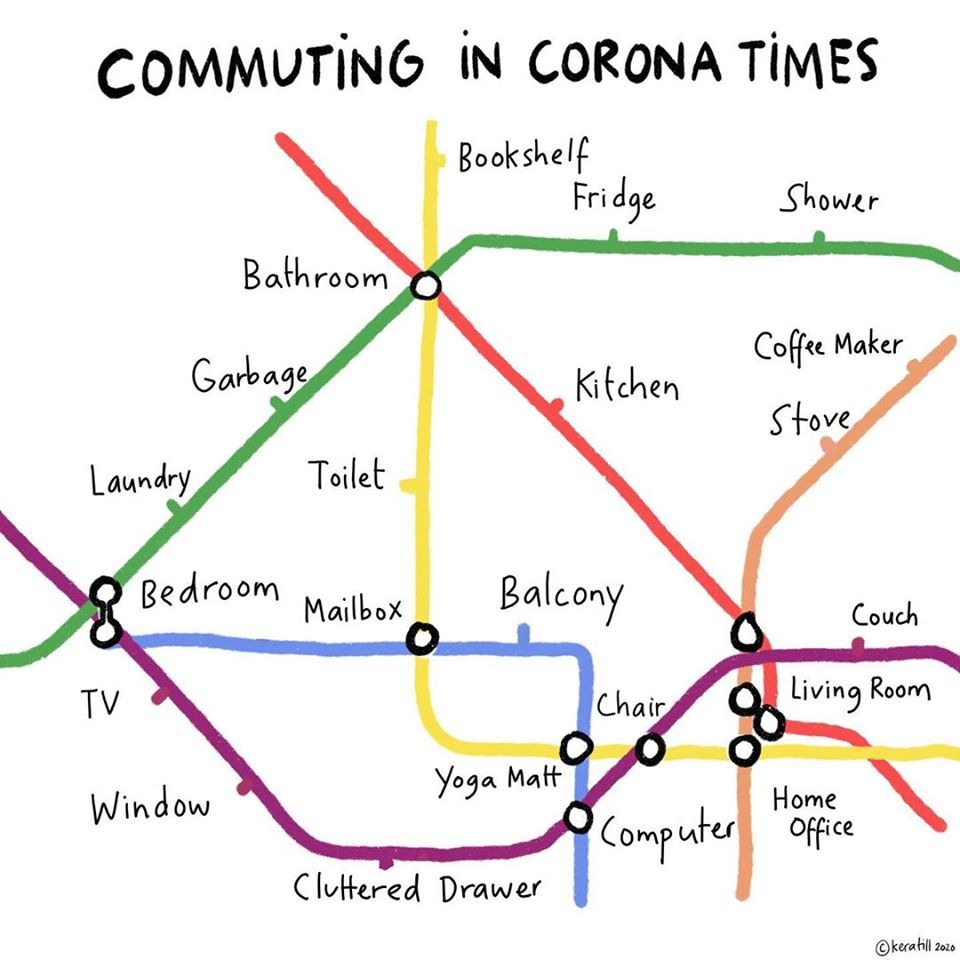 COMMUTING IN CORONA TIMES
Bookshelf
Fridge
Shower
Bathroom
Coffee Maker
Garbage
Kitchen
Stove
Laundry
Toilet
Bedroom
Mailbox
Balcony
Couch
TV
Chair
Living Room
Yoga Matt
Window
Computer
Home
Office
Cluttered Drawer
©kerahill 2020